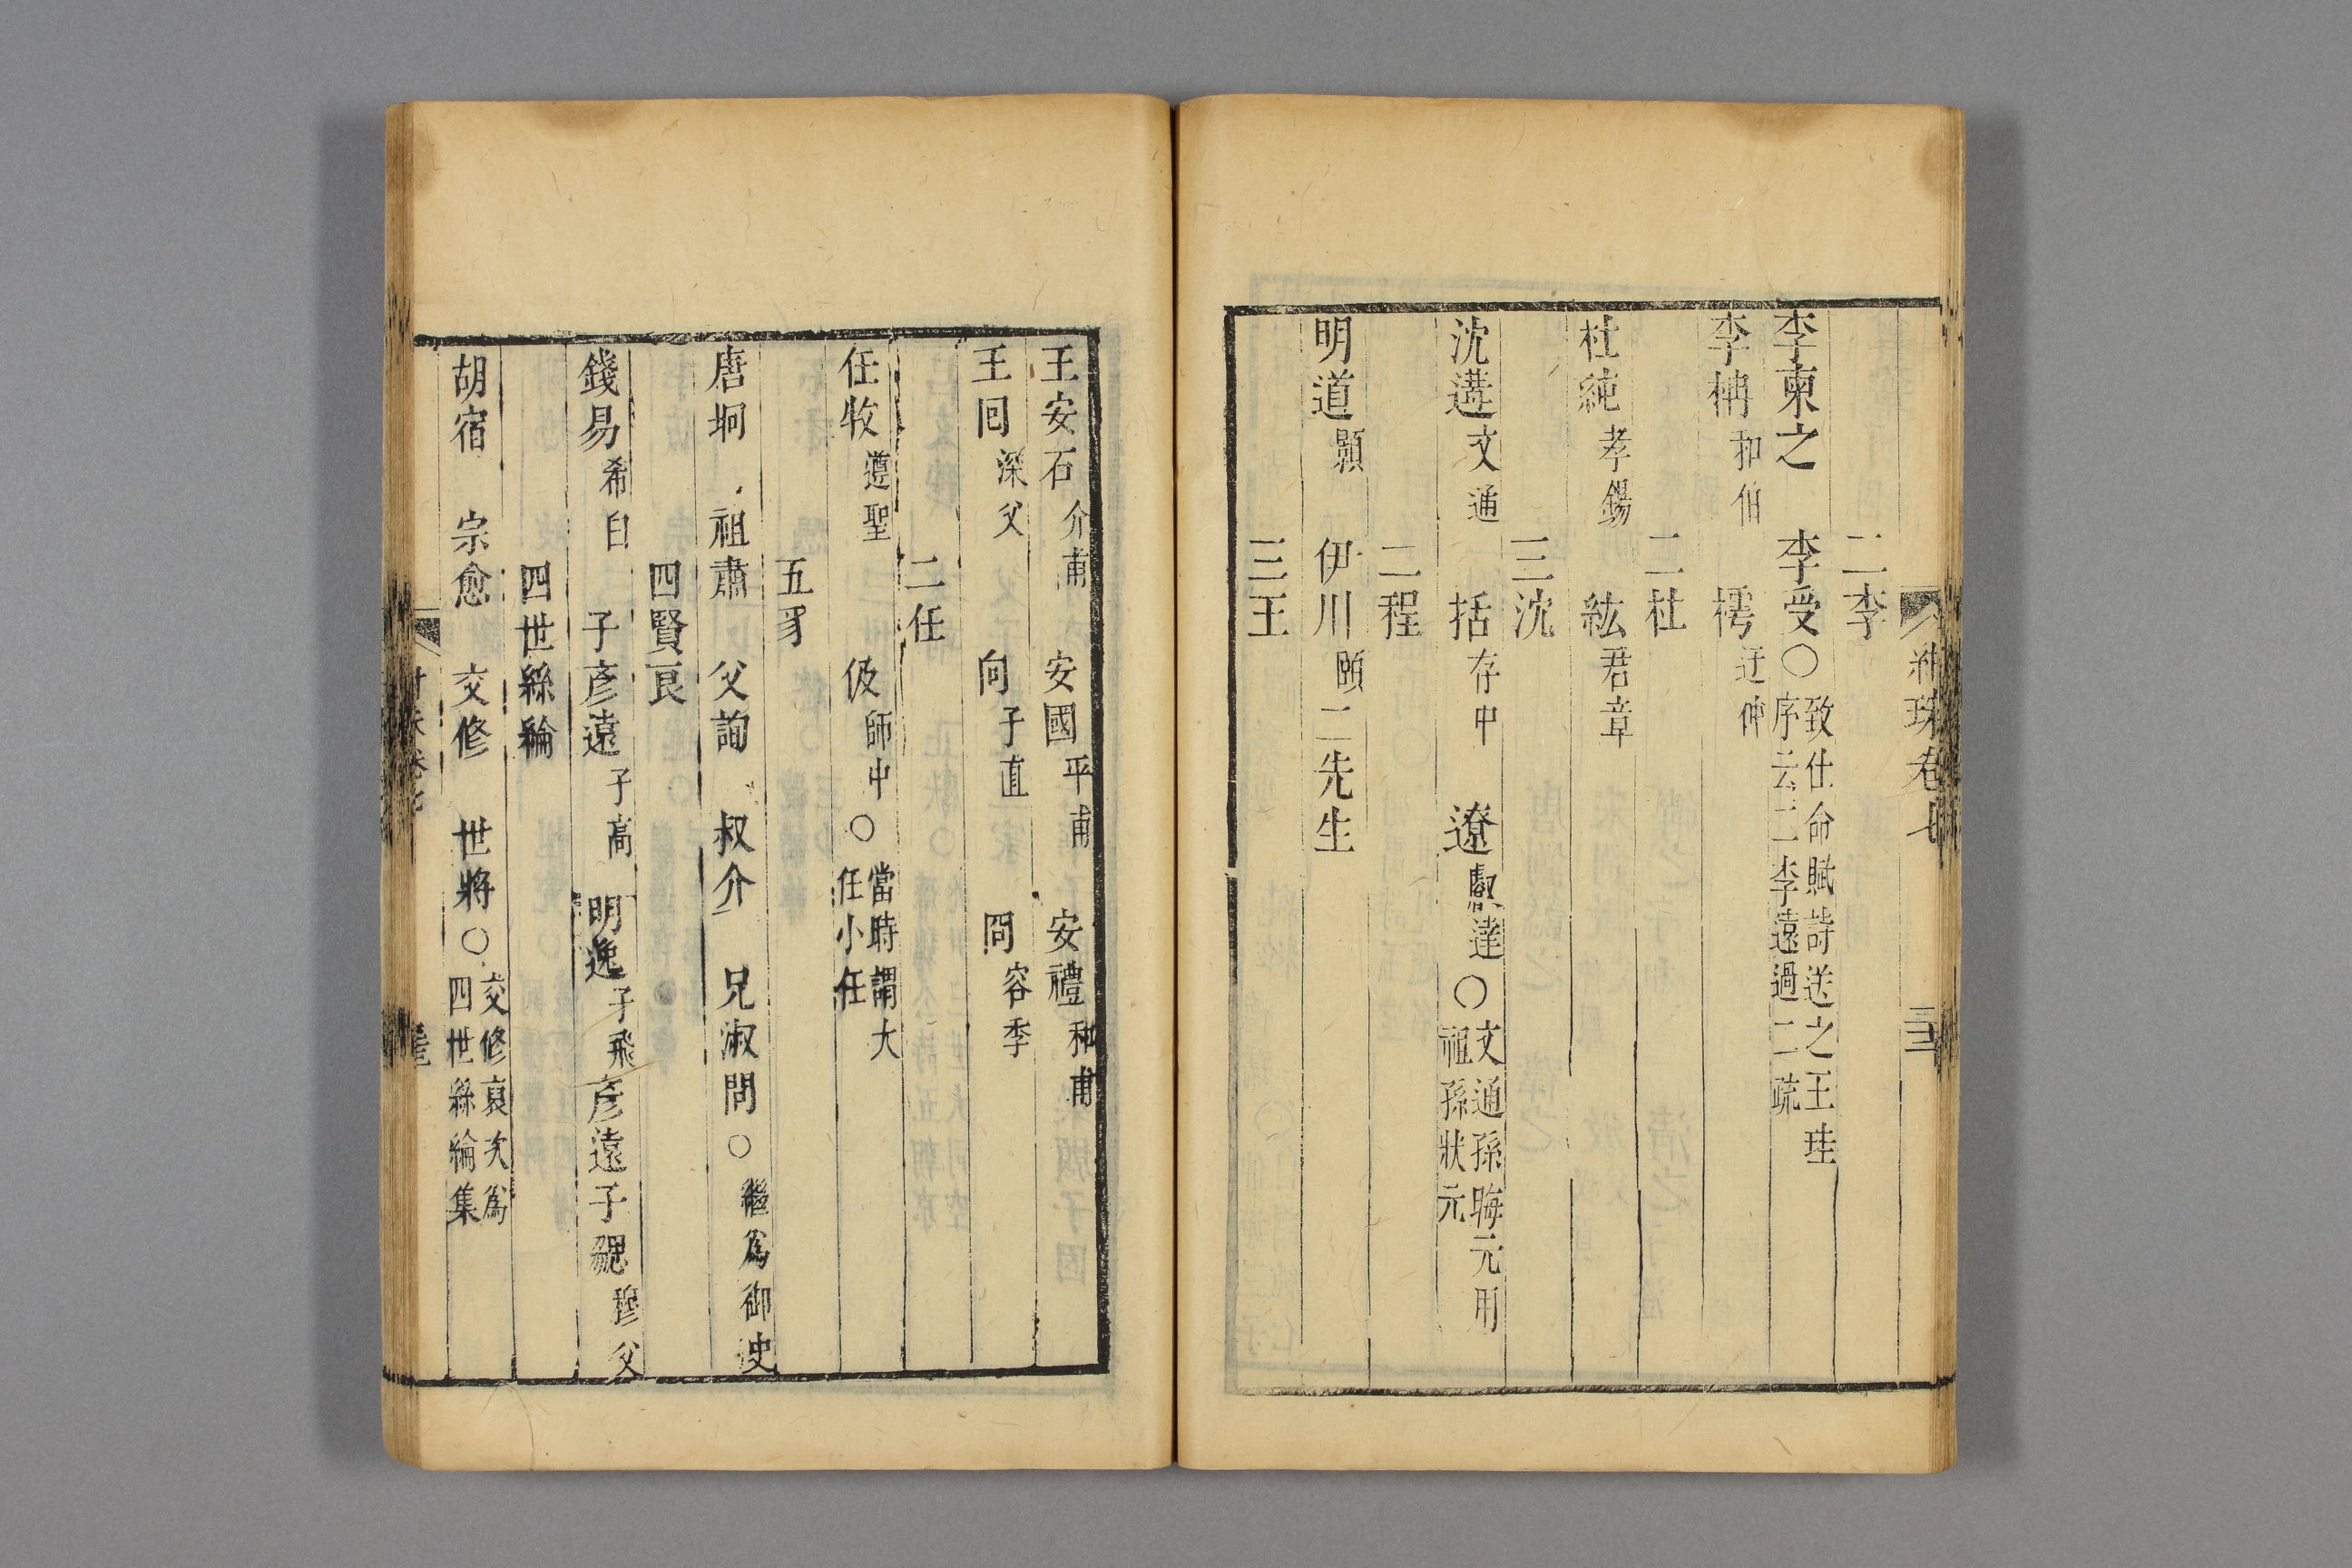 二李
李柬之 李受○致仕命賦詩送之王珪序云二李遠過二疏
李梼和伯 樗迂仲
二杜
杜純孝錫 紘君章
三沈
沈遘文通 括存中 遼叡達○文通孫晦元用祖孫狀元
二程
明道顥 伊川頤二先生
三王
王安石介甫 安國平甫 安禮和甫
王回深父 向子直 冏容季
二任
任牧遵聖 伋師中○當時謂大任小任
五豸
唐坰 祖肅 父詢 叔介 兄淑問○繼爲御史
四賢良
錢易希白 子彥遠子高 明逸子飛彥遠子勰穆父
四世絲綸
胡宿 宗愈 交修 世將○交修裒次爲四世絲綸集